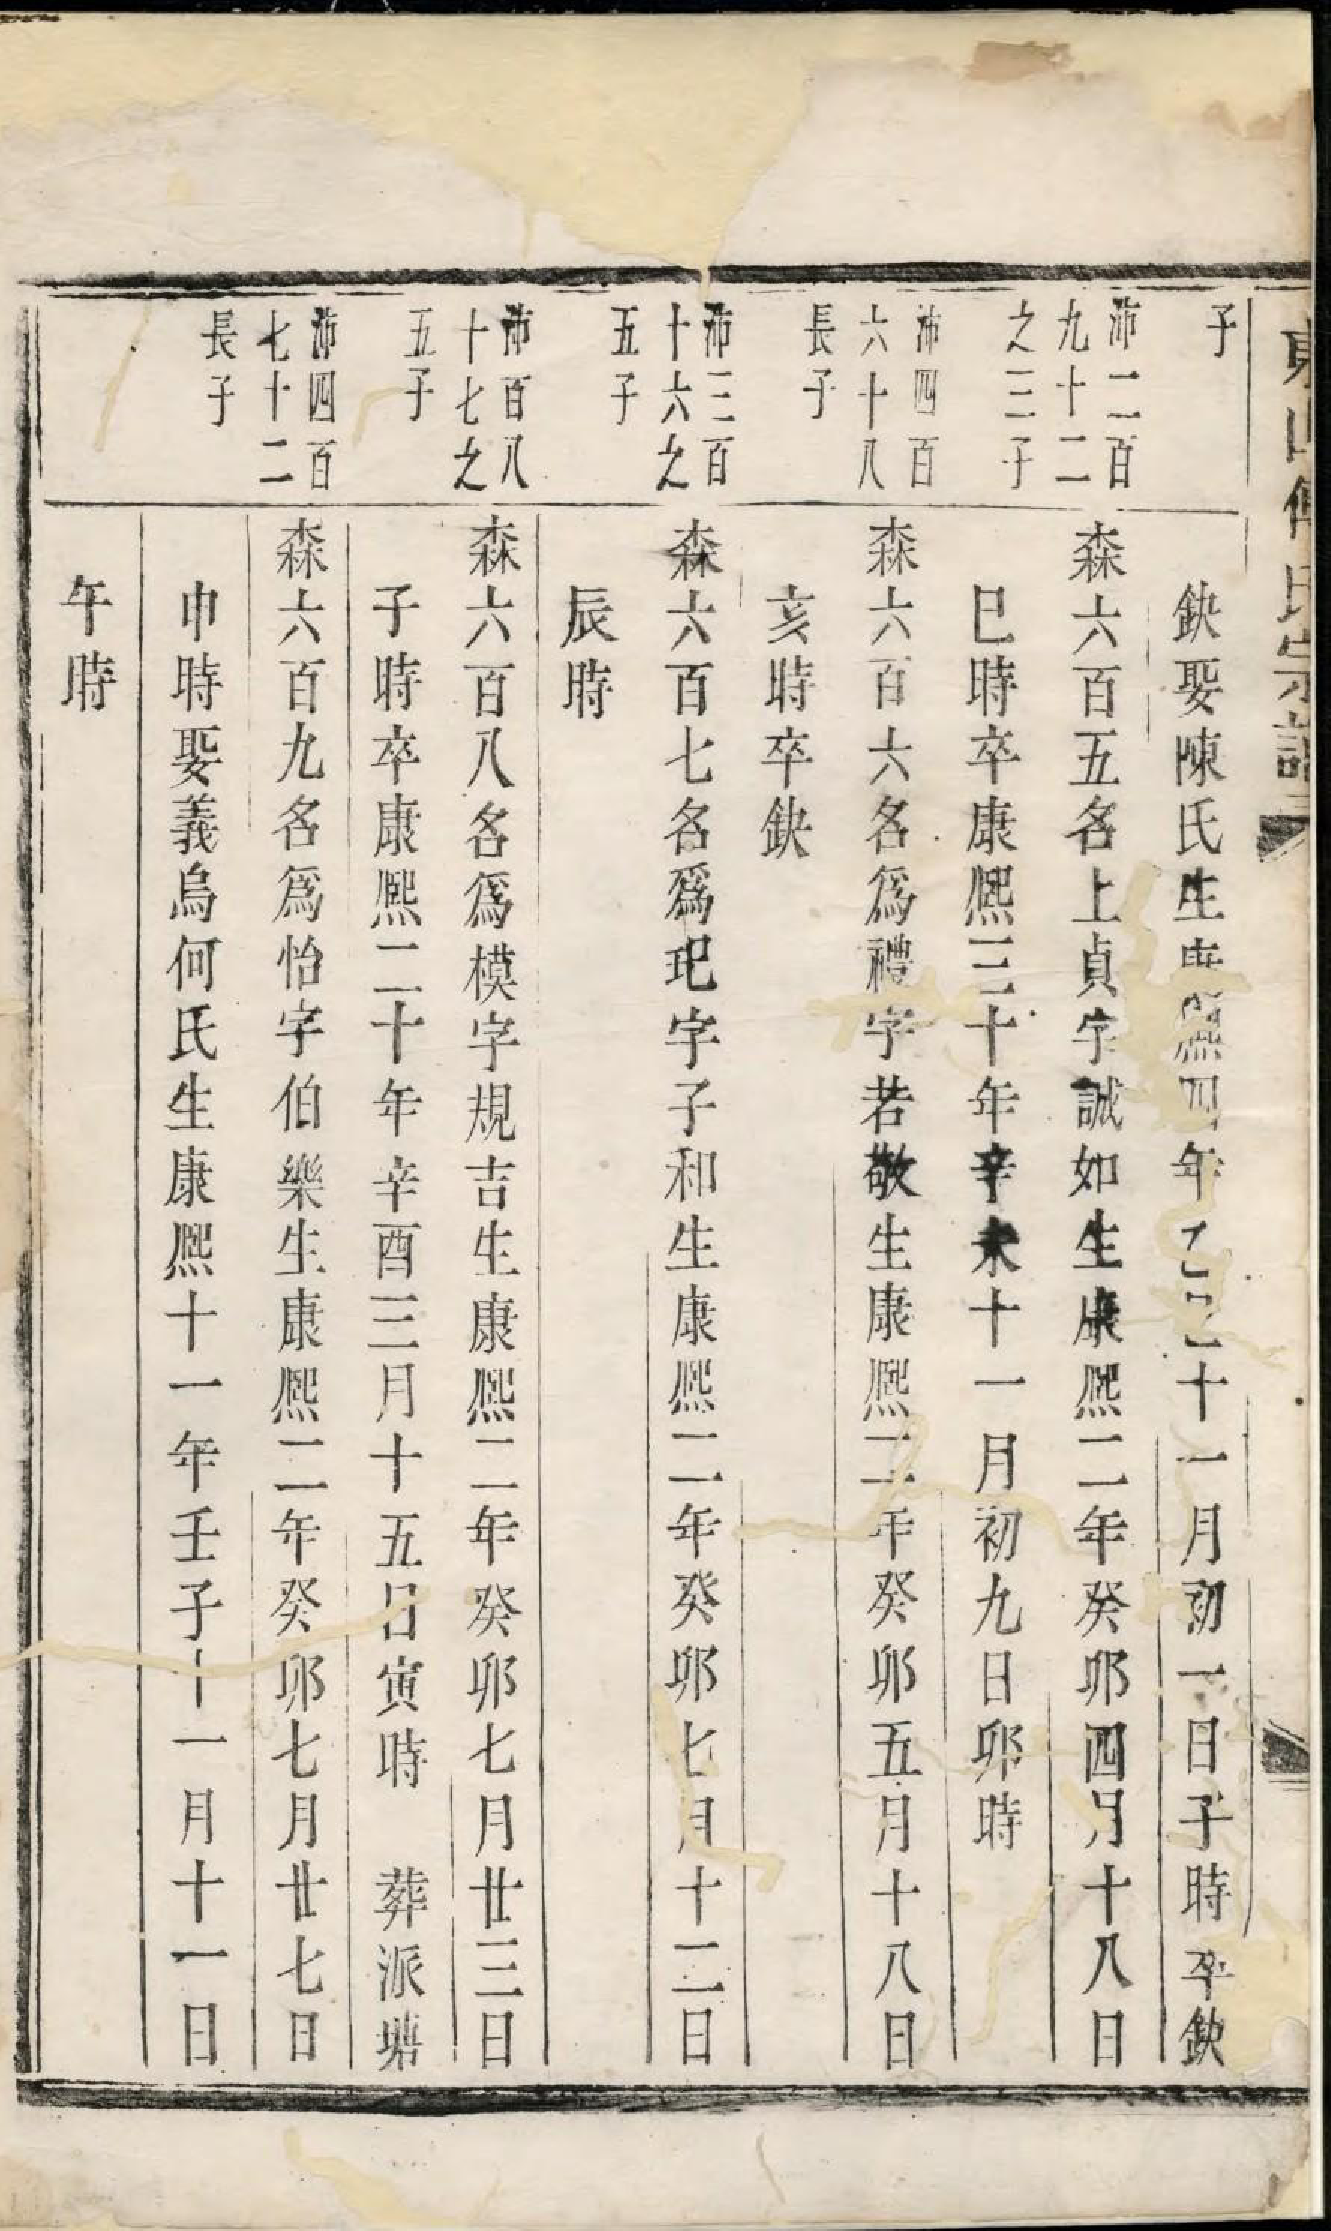 子
鈌娶陳氏生康熙四年乙巳十一月初一日子時卒鈌
沛二百
九十二
之三子
森六百五名上貞字誠如生康熙二年癸卯四月十八日
巳時卒康熙三十年辛未十一月初九日卯時
沛四百
六十八
長子
森六百六名爲禮字若敬生康熙二年癸卯五月十八日
亥時卒鈌
沛三百
十六之
五子
森六百七名爲玘字子和生康熙二年癸卯七月十二日
辰時
沛百八
十七之
五子
森六百八名爲模字規吉生康熙二年癸卯七月廿三日
子時卒康熙二十年辛酉三月十五日寅時　葬派塘
沛四百
七十二
長子
森六百九名爲怡字伯樂生康熙二年癸卯七月廿七日
申時娶義烏何氏生康熙十一年壬子十一月十一日
午時